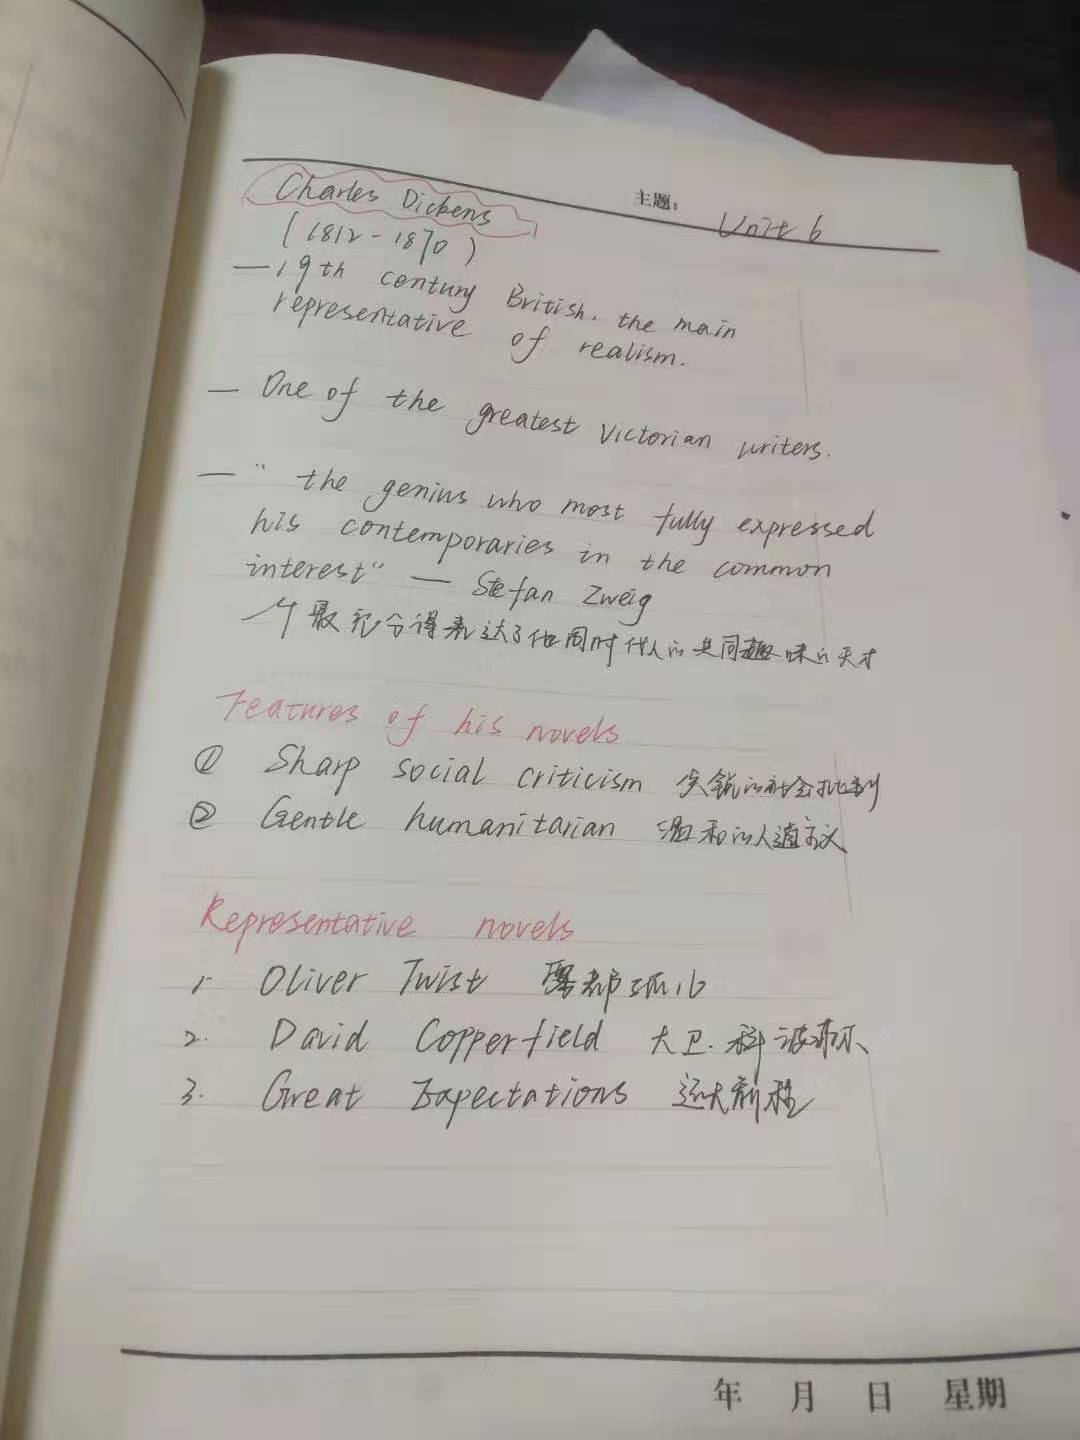 主题: Unit 6
Charles Dickens
(1812-1870)
— 19th century British. the main
representative of realism.
— One of the greatest Victorian writers.
— " the genius who most fully expressed
his contemporaries in the common
interest" — Stefan Zweig
个最充分得表达了他同时代人的共同趣味的天才
Features of his novels
① Sharp social criticism 尖锐的社会批判
② Gentle humanitarian 温和的人道主义
Representative novels
1. Oliver Twist 雾都孤儿
2. David Copperfield 大卫.科波菲尔
3. Great Expectations 远大前程
年 月 日 星期